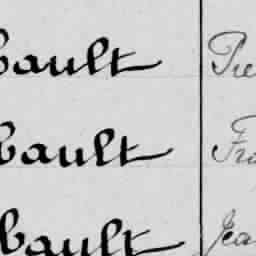 bault Pre
bault Fra
bault Jea